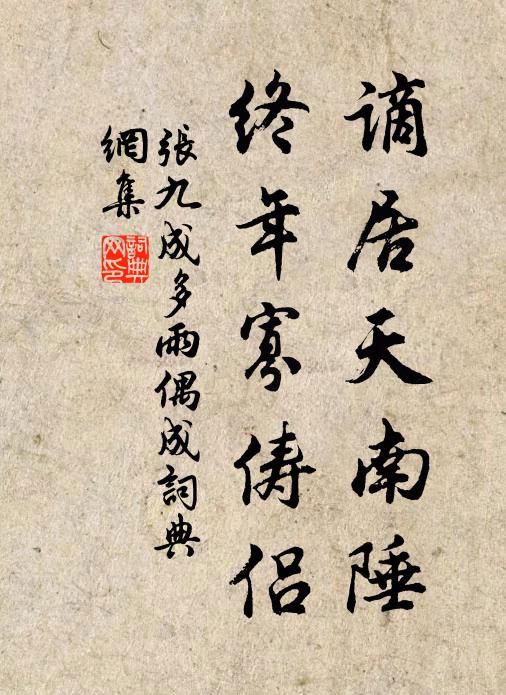 謫居天南陲
終年寡儔侶
張九成多雨偶成詞典
網集
詞典
网印